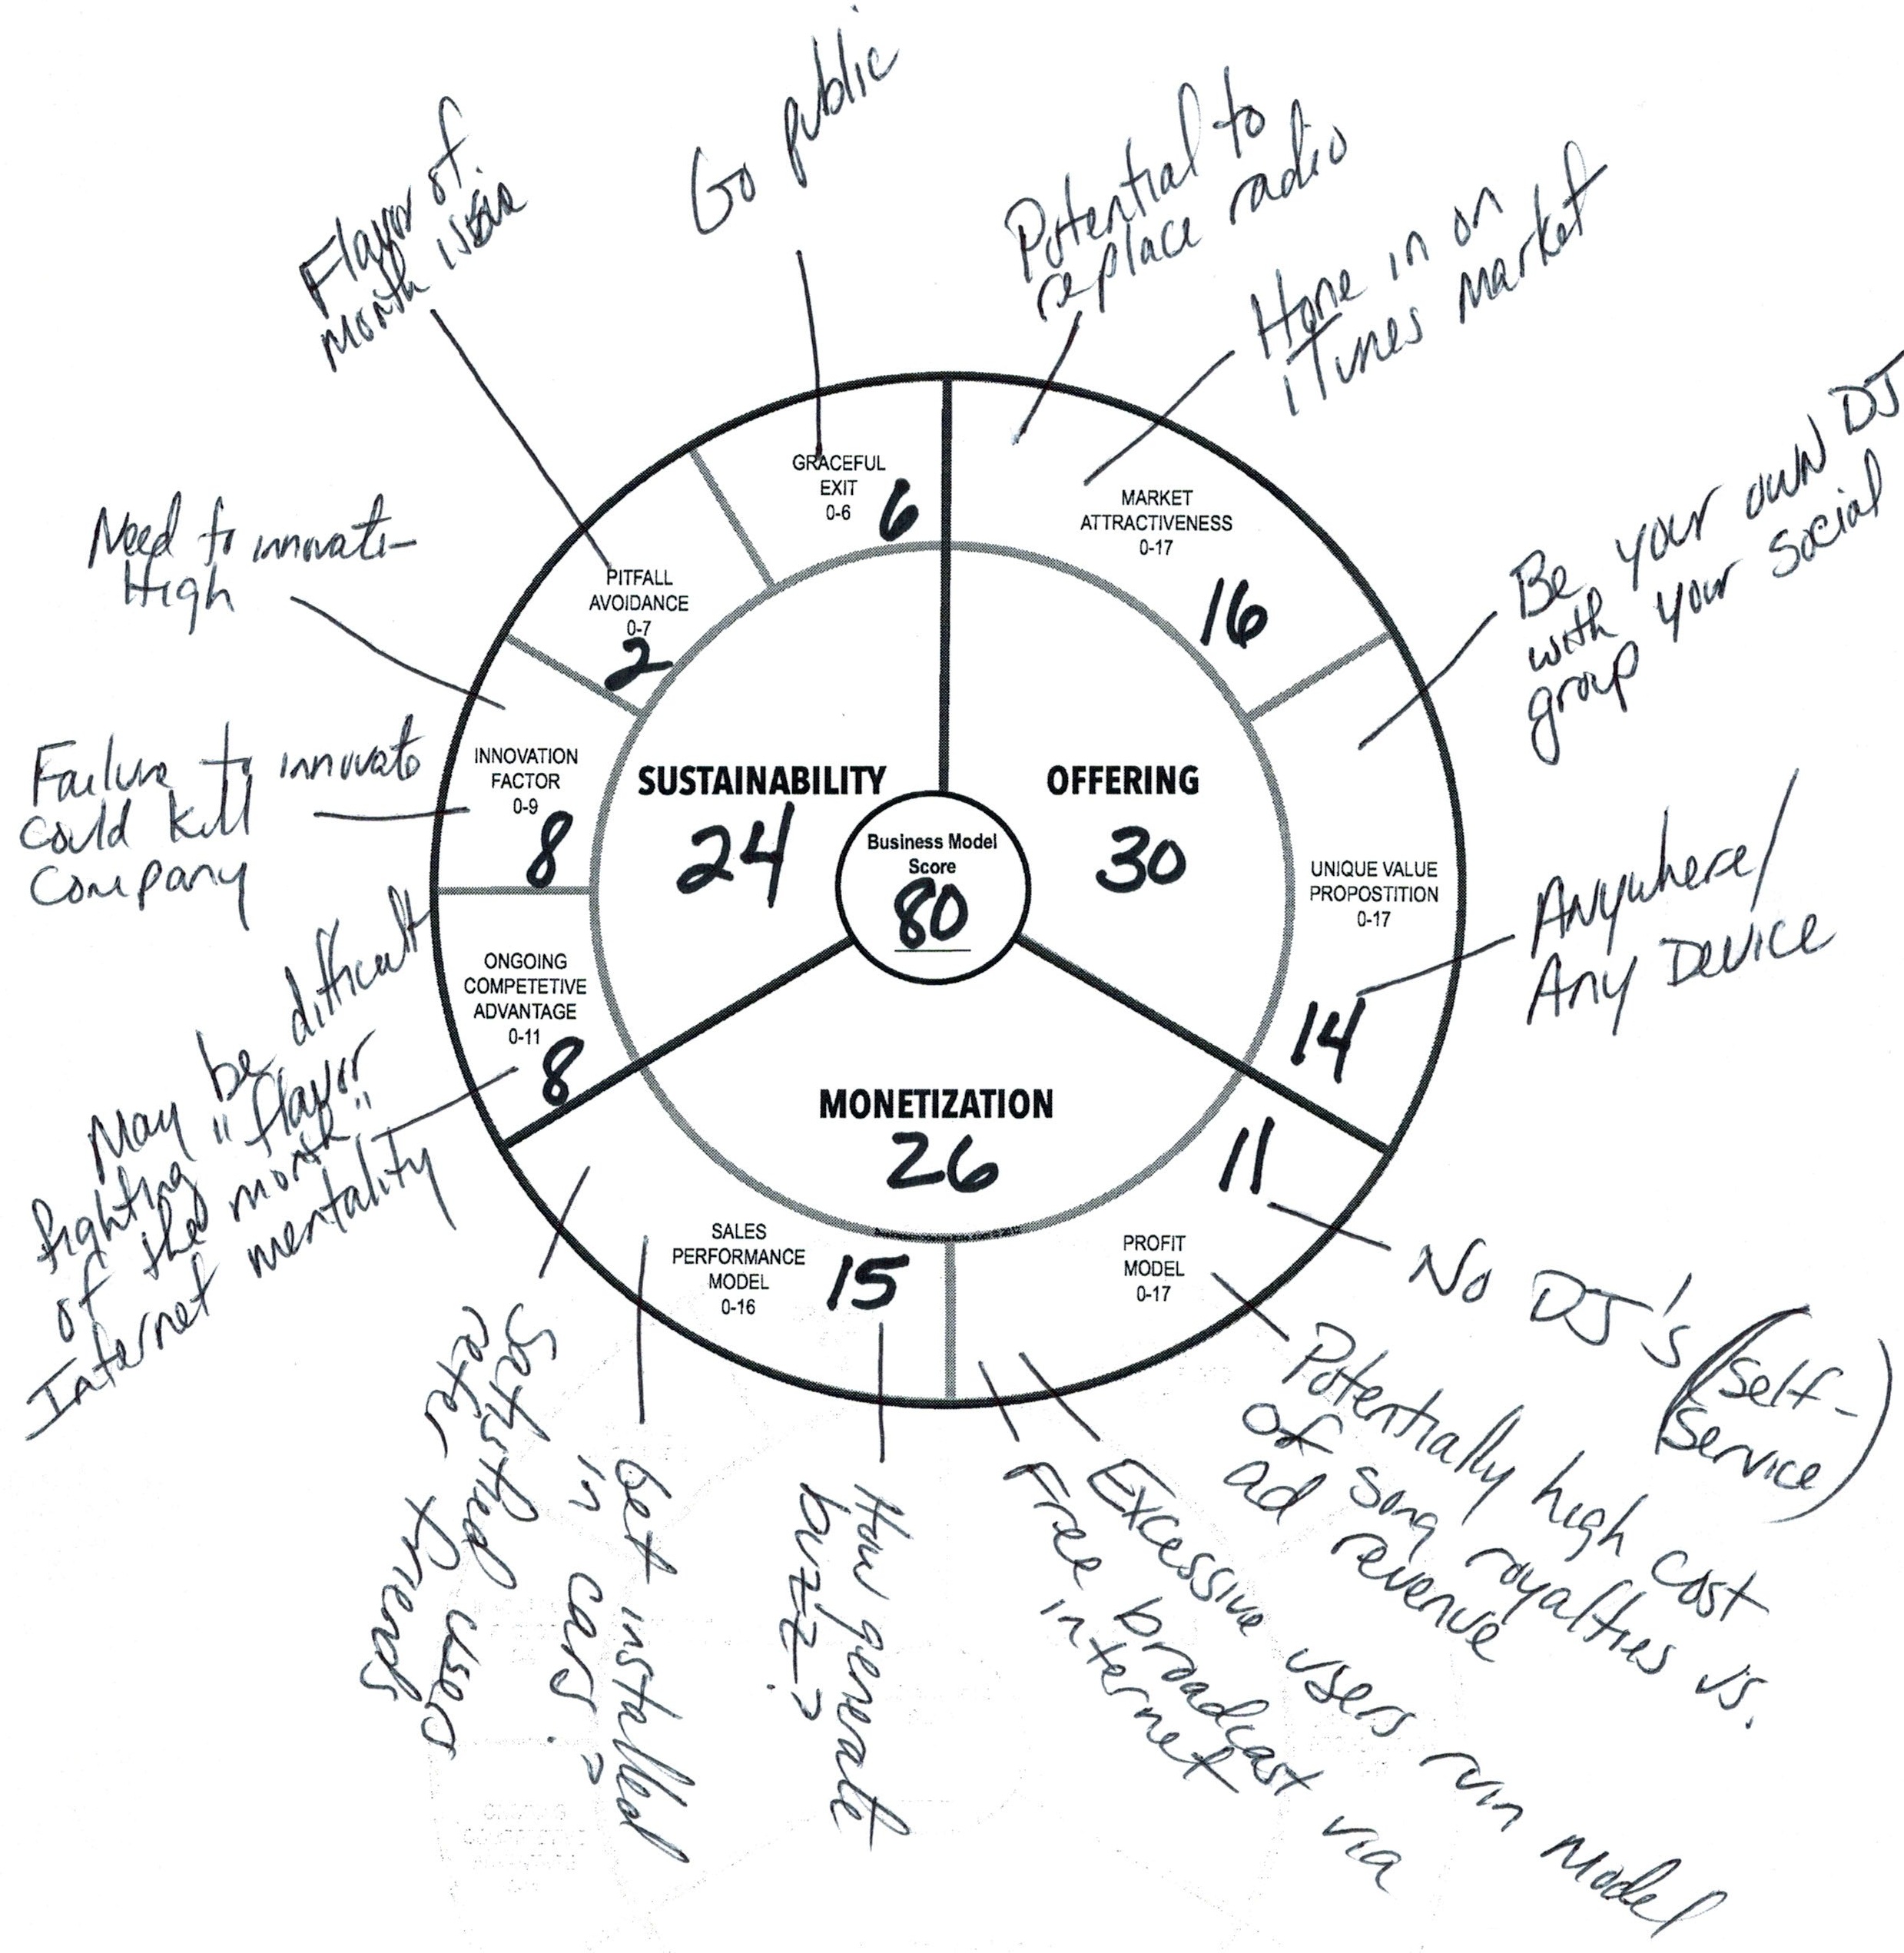 Go public
Flavor of
month
Potential to
replace radio
Hone in on
iTunes Market
Be your own DJ
with your social
group
Anywhere/
Any Device
GRACEFUL
EXIT
0-6
6
MARKET
ATTRACTIVENESS
0-17
16
PITFALL
AVOIDANCE
0-7
2
Need to innovate-
High
Failure to innovate
could kill
company
INNOVATION
FACTOR
0-9
8
SUSTAINABILITY
24
OFFERING
30
Business Model
Score
80
UNIQUE VALUE
PROPOSTITION
0-17
14
ONGOING
COMPETETIVE
ADVANTAGE
0-11
8
May be difficult
fighting "flavor
of the month"
Internet mentality
MONETIZATION
26
SALES
PERFORMANCE
MODEL
0-16
15
PROFIT
MODEL
0-17
11
No DJ's (Self-
Service)
Potentially high cost
of song royalties vs.
ad revenue
Excessive users run model
Free broadcast via
internet
How generate
buzz?
Get installed
in cars?
Satisfied users
refer friends